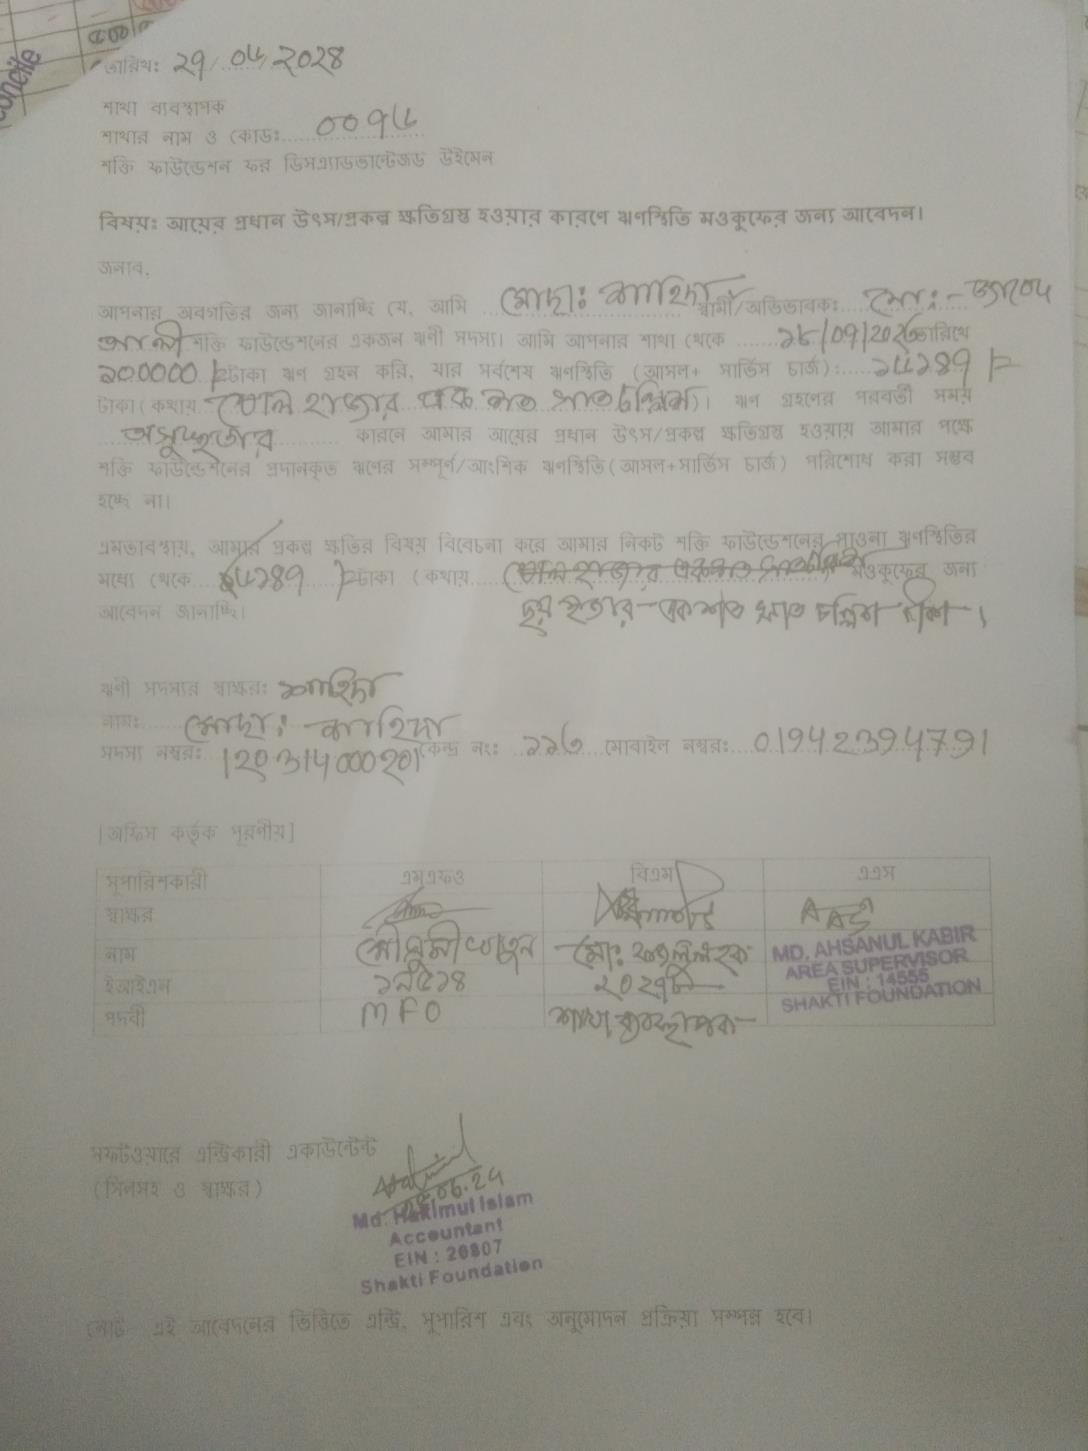 তারিখ: ২৭/০৬/২০২৪
শাখা ব্যবস্থাপক
শাখার নাম ও কোডঃ ০০৭৬
শক্তি ফাউন্ডেশন ফর ডিসএ্যাডভান্টেজড উইমেন
বিষয়ঃ আয়ের প্রধান উৎস/প্রকল্প ক্ষতিগ্রস্ত হওয়ার কারণে ঋণস্থিতি মওকুফের জন্য আবেদন।
জনাব,
আপনার অবগতির জন্য জানাচ্ছি যে, আমি মোছাঃ নাহিদা স্বামী/অভিভাবক: মোঃ-
আলী শক্তি ফাউন্ডেশনের একজন ঋণী সদস্য। আমি আপনার শাখা থেকে তারিখে
১০০০০০/= টাকা ঋণ গ্রহন করি, যার সর্বশেষ ঋণস্থিতি (আসল+ সার্ভিস চার্জ): ১৬১৪৭/=
টাকা (কথায় ষোল হাজার এক শত সাত চল্লিশ)। ঋণ গ্রহণের পরবর্তী সময়
অসুস্থতার কারনে আমার আয়ের প্রধান উৎস/প্রকল্প ক্ষতিগ্রস্ত হওয়ায় আমার পক্ষে
শক্তি ফাউন্ডেশনের প্রদানকৃত ঋণের সম্পূর্ণ/আংশিক ঋণস্থিতি(আসল+সার্ভিস চার্জ) পরিশোধ করা সম্ভব
হচ্ছে না।
এমতাবস্থায়, আমার প্রকল্প ক্ষতির বিষয় বিবেচনা করে আমার নিকট শক্তি ফাউন্ডেশনের পাওনা ঋণস্থিতির
মধ্যে থেকে টাকা (কথায় মওকুফের জন্য
আবেদন জানাচ্ছি। ছয় হাজার একশত সাত চল্লিশ টাকা।
ঋণী সদস্যর স্বাক্ষর: নাহিদা
নাম: মোছাঃ নাহিদা
সদস্য নম্বর: কেন্দ্র নং: ১১৬ মোবাইল নম্বর: 01942394791
[অফিস কর্তৃক পূরণীয়]
সুপারিশকারী এমএফও বিএম এএস
স্বাক্ষর
নাম মৌসুমী খাতুন মোঃ MD. AHSANUL KABIR
AREA SUPERVISOR
ইআইএন EIN : 14555
SHAKTI FOUNDATION
পদবী MFO শাখা ব্যবস্থাপক
সফটওয়ারে এন্ট্রিকারী একাউন্টেন্ট
(সিলসহ ও স্বাক্ষর)
Md. Hakimul Islam
Accountant
EIN : 20807
Shakti Foundation
নোট এই আবেদনের ভিত্তিতে এন্ট্রি, সুপারিশ এবং অনুমোদন প্রক্রিয়া সম্পন্ন হবে।